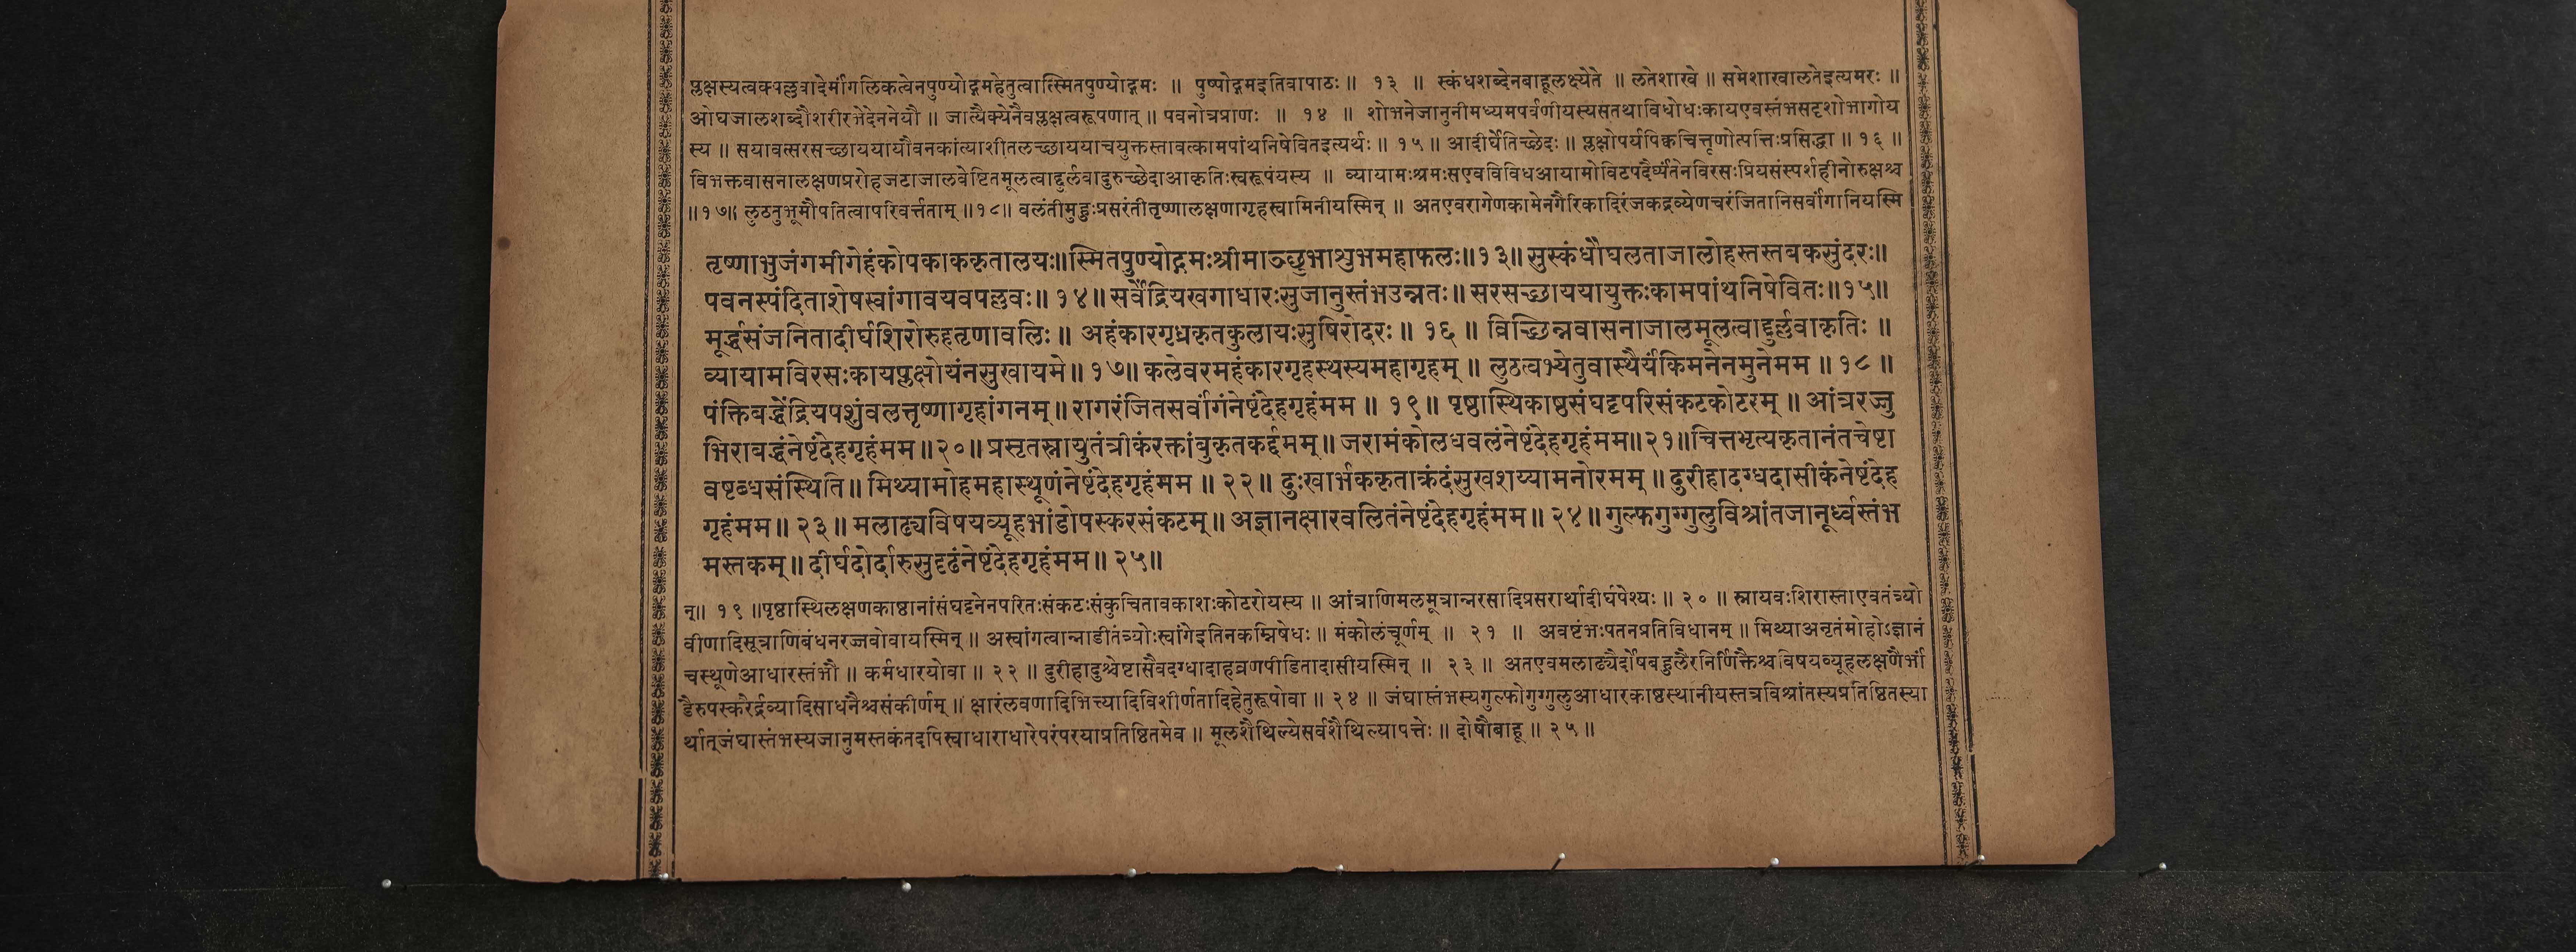 प्लक्षस्यत्वक्पल्लवादेर्मांगलिकत्वेनपुण्योद्गमहेतुत्वात्स्मितपुण्योद्गमः ॥ पुष्पोद्गमइतिवापाठः ॥ १३ ॥ स्कंधशब्देनबाहूलक्ष्येते ॥ लतेशाखे ॥ समेशाखालतेइत्यमरः ॥
ओघजालशब्दौशरीरभेदेननेयौ ॥ जात्यैक्येनैवप्लक्षत्वरूपणात् ॥ पवनोत्रप्राणः ॥ १४ ॥ शोभनेजानुनीमध्यमपर्वणीयस्यसतथाविधोधःकायएवस्तंभसदृशोभागोय
स्य ॥ सयावत्सरसच्छाययायौवनकांत्याशीतलच्छाययाचयुक्तस्तावत्कामपांथनिषेवितइत्यर्थः ॥ १५ ॥ आदीर्घेतिच्छेदः ॥ प्लक्षोपर्यपिक्वचित्तृणोत्पत्तिःप्रसिद्धा ॥ १६ ॥
विभक्तवासनालक्षणप्ररोहजटाजालवेष्टितमूलत्वाद्दुर्लवादुरुच्छेदाआकृतिःस्वरूपंयस्य ॥ व्यायामःश्रमःसएवविविधआयामोविटपदैर्घ्यंतेनविरसःप्रियसंस्पर्शहीनोरुक्षश्च
॥१७॥ लुठतुभूमौपतित्वापरिवर्त्तताम् ॥१८॥ वलंतीमुहुःप्रसरंतीतृष्णालक्षणागृहस्वामिनीयस्मिन् ॥ अतएवरागेणकामेनगैरिकादिरंजकद्रव्येणचरंजितानिसर्वांगानियस्मि
तृष्णाभुजंगमीगेहंकोपकाककृतालयः॥स्मितपुण्योद्गमःश्रीमाञ्छुभाशुभमहाफलः॥१३॥ सुस्कंधौघलताजालोहस्तस्तबकसुंदरः॥
पवनस्पंदिताशेषस्वांगावयवपल्लवः॥ १४॥ सर्वेंद्रियखगाधारःसुजानुस्तंभउन्नतः॥ सरसच्छाययायुक्तःकामपांथनिषेवितः॥१५॥
मूर्द्धसंजनितादीर्घशिरोरुहतृणावलिः॥ अहंकारगृध्रकृतकुलायःसुषिरोदरः॥ १६ ॥ विच्छिन्नवासनाजालमूलत्वाद्दुर्लवाकृतिः ॥
व्यायामविरसःकायप्लक्षोयंनसुखायमे॥ १७॥ कलेवरमहंकारगृहस्थस्यमहागृहम् ॥ लुठत्वभ्येतुवास्थैर्यंकिमनेनमुनेमम ॥ १८ ॥
पंक्तिबद्धेंद्रियपशुंवलत्तृष्णागृहांगनम्॥ रागरंजितसर्वांगंनेष्टंदेहगृहंमम ॥ १९॥ पृष्ठास्थिकाष्ठसंघट्टपरिसंकटकोटरम् ॥ आंत्ररज्जु
भिराबद्धंनेष्टंदेहगृहंमम॥२०॥ प्रसृतस्नायुतंत्रीकंरक्तांबुकृतकर्द्दमम्॥ जरामंकोलधवलंनेष्टंदेहगृहंमम॥२१॥चित्तभृत्यकृतानंतचेष्टा
वष्टब्धसंस्थिति॥ मिथ्यामोहमहास्थूणंनेष्टंदेहगृहंमम ॥ २२॥ दुःखार्भककृताक्रंदंसुखशय्यामनोरमम् ॥ दुरीहादग्धदासीकंनेष्टंदेह
गृहंमम॥ २३॥ मलाढ्यविषयव्यूहभांडोपस्करसंकटम्॥ अज्ञानक्षारवलितंनेष्टंदेहगृहंमम॥ २४॥ गुल्फगुग्गुलुविश्रांतजानूर्ध्वस्तंभ
मस्तकम्॥ दीर्घदोर्दारुसुदृढंनेष्टंदेहगृहंमम॥ २५॥
न्॥ १९ ॥पृष्ठास्थिलक्षणकाष्ठानांसंघट्टनेनपरितःसंकटःसंकुचितावकाशःकोटरोयस्य ॥ आंत्राणिमलमूत्रान्नरसादिप्रसरार्थादीर्घपेश्यः ॥ २० ॥ स्नायवःशिरास्ताएवतंत्र्यो
वीणादिसूत्राणिबंधनरज्जवोवायस्मिन् ॥ अस्वांगत्वान्नाडीतंत्र्योःस्वांगेइतिनकम्निषेधः ॥ मंकोलंचूर्णम् ॥ २१ ॥ अवष्टंभःपतनप्रतिविधानम् ॥ मिथ्याअनृतंमोहोऽज्ञानं
चस्थूणेआधारस्तंभौ ॥ कर्मधारयोवा ॥ २२ ॥ दुरीहादुश्चेष्टासैवदग्धादाहव्रणपीडितादासीयस्मिन् ॥ २३ ॥ अतएवमलाढ्यैर्दोषबहुलैरनिर्णिक्तैश्चविषयव्यूहलक्षणैर्भां
डैरुपस्करैर्द्रव्यादिसाधनैश्चसंकीर्णम् ॥ क्षारंलवणादिभित्त्यादिविशीर्णतादिहेतुरूपोवा ॥ २४ ॥ जंघास्तंभस्यगुल्फोगुग्गुलुआधारकाष्ठस्थानीयस्तत्रविश्रांतस्यप्रतिष्ठितस्या
र्थात्जंघास्तंभस्यजानुमस्तकंतदपिस्वाधाराधारेपरंपरयाप्रतिष्ठितमेव ॥ मूलशैथिल्येसर्वशैथिल्यापत्तेः ॥ दोषौबाहू ॥ २५ ॥